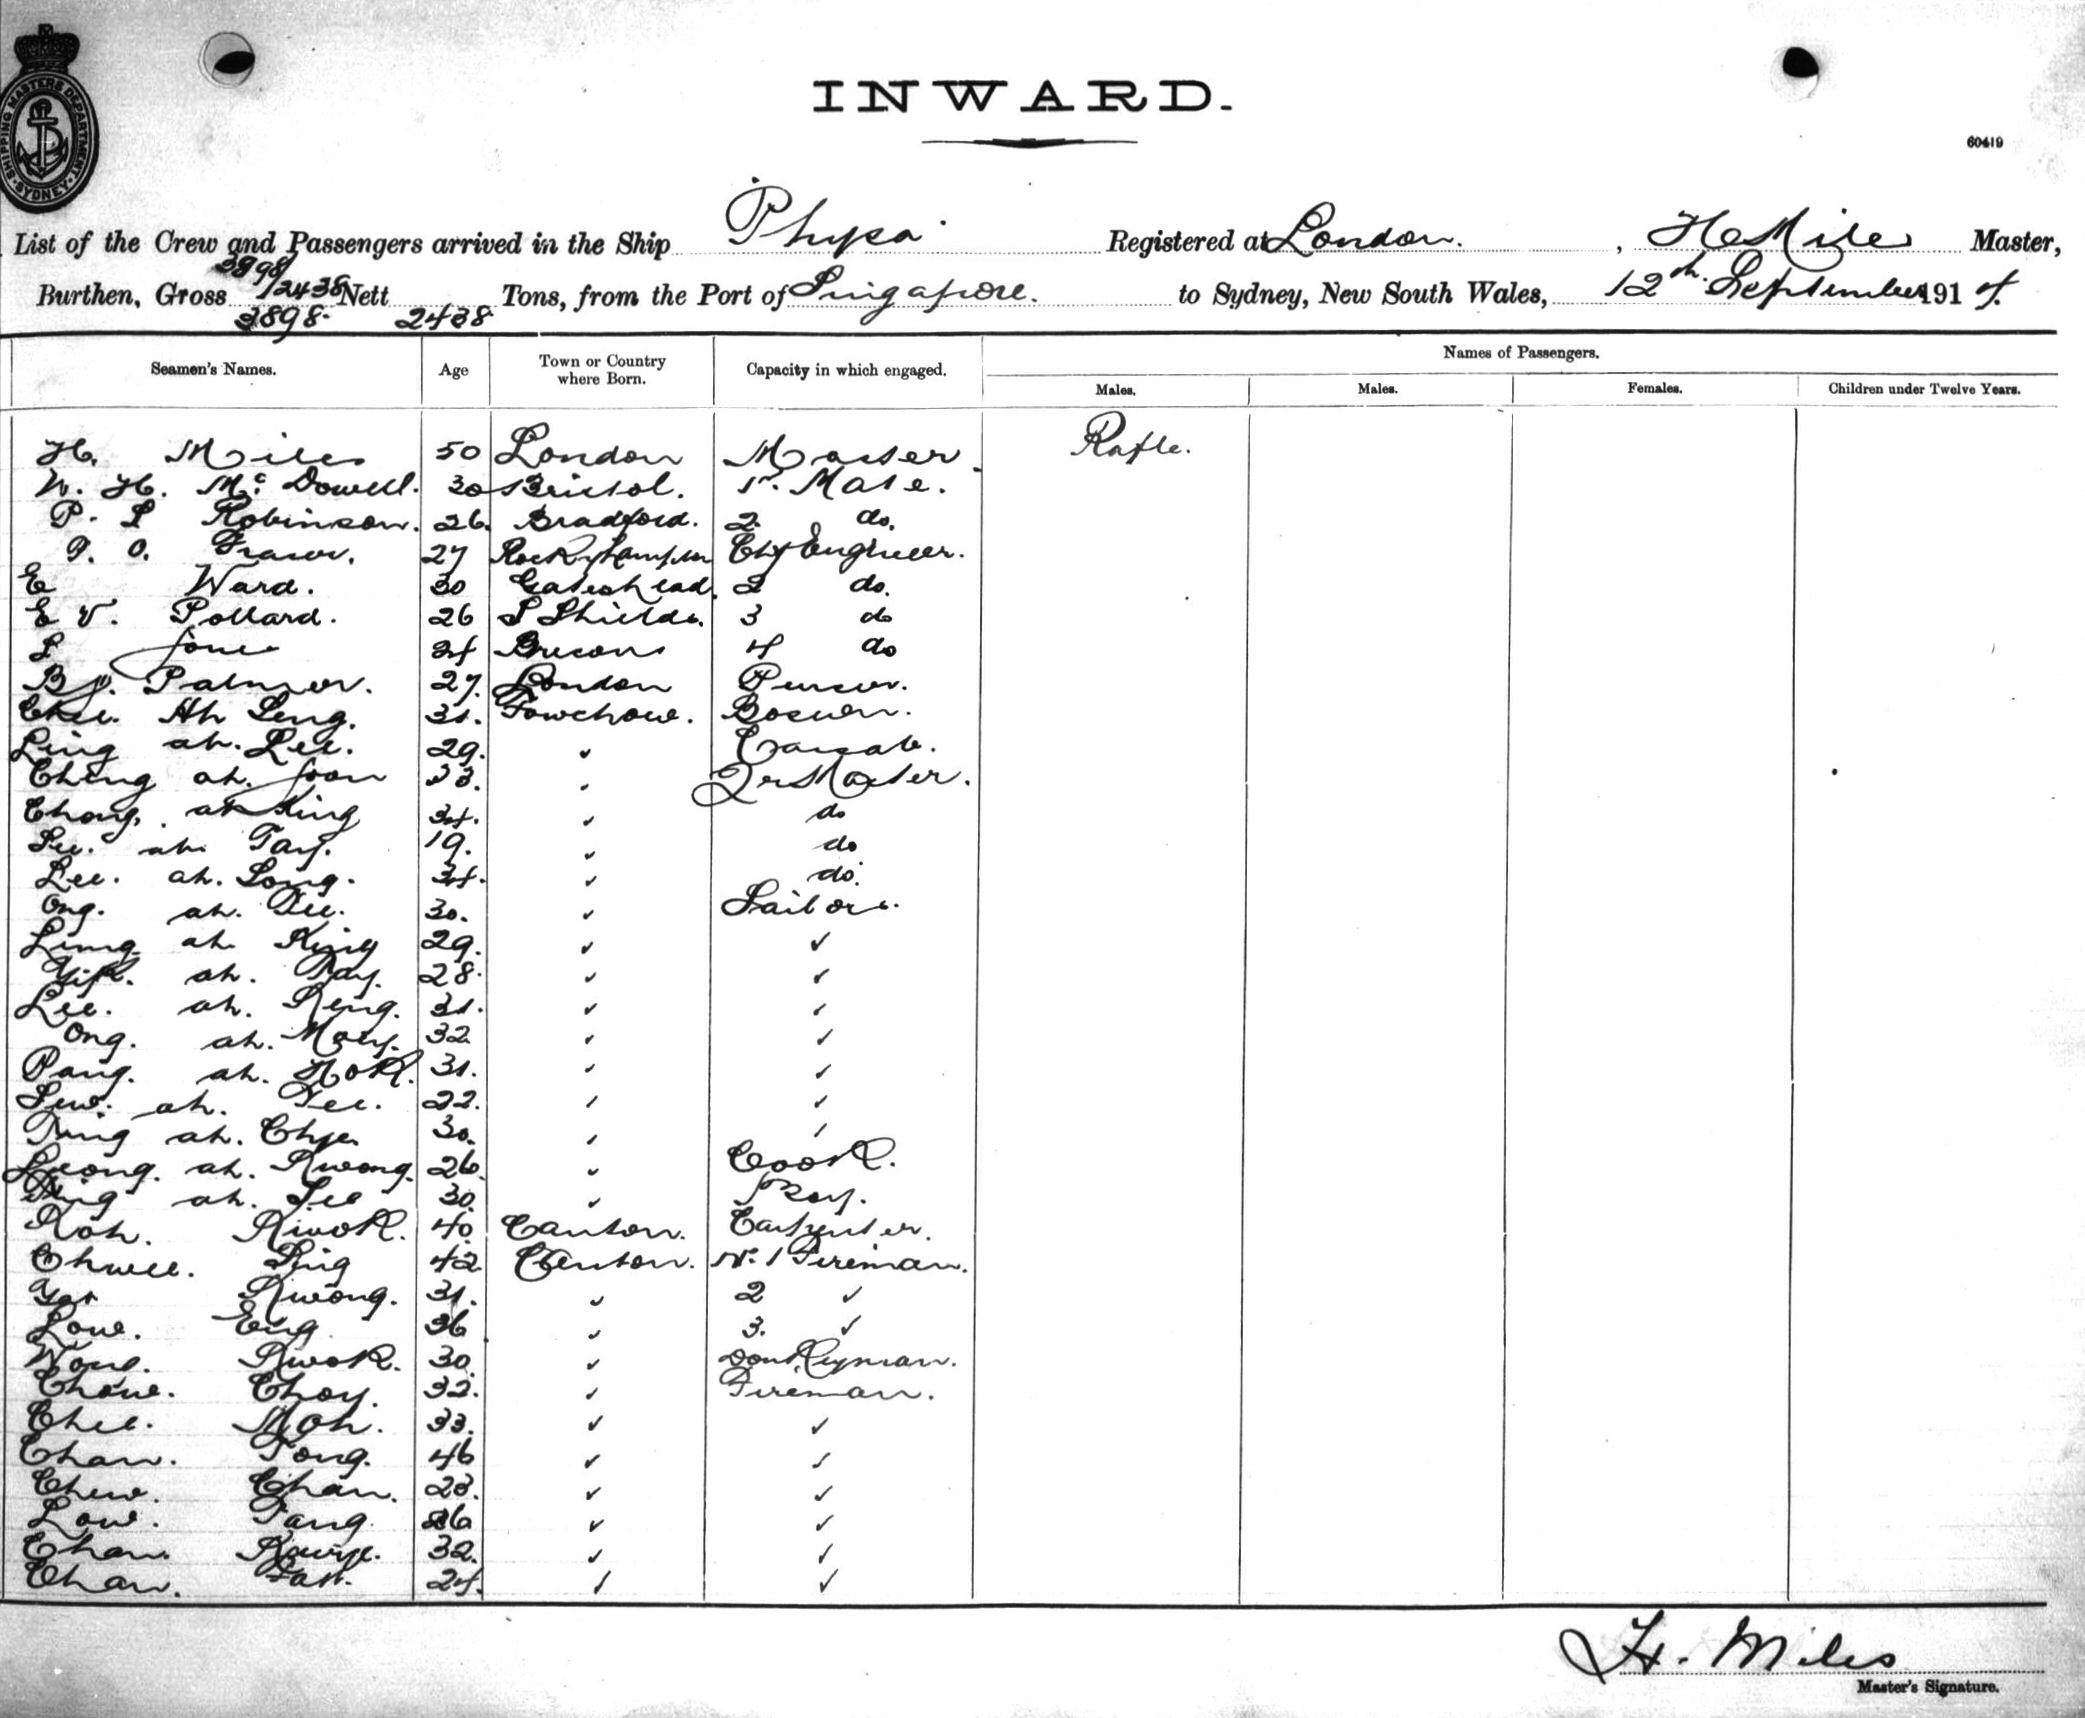 SHIPPING MASTERS DEPARTMENT SYDNEY
INWARD.
60419
List of the Crew and Passengers arrived in the Ship Physa Registered at London. , H Miles Master,
3898/2438
Burthen, Gross 3898 Nett 2438 Tons, from the Port of Singapore. to Sydney, New South Wales, 12th September 1914.
Seamen's Names. Age Town or Country where Born. Capacity in which engaged. Names of Passengers.
Males. Males. Females. Children under Twelve Years.
H. Miles 50 London Master.
W. H. McDowell. 30 Bristol. 1st Mate.
P. L Robinson. 26. Bradford. 2. do.
P. O. Fraser. 27 Rockhampton Chf Engineer.
E Ward. 30 Gateshead. 2 do.
E V. Pollard. 26 S Shields. 3 do
L Jones 24 4 do
B J. Palmer. 27. London Purser.
Ah Seng. 31. Fowchow. Bosun.
Ling ah. Lee. 29. ✓
Ching ah. Joon 33. ✓ QrMaster.
Chong. ah King 34. ✓ do
Lee. ah. Tay. 19. ✓ do
Lee. ah. Song. 34. ✓ do.
Ong. ah. Tee. 30. ✓ Sailors.
Ling ah King 29. ✓ ✓
Yik. ah. Tay. 28. ✓ ✓
Lee. ah. Keng. 31. ✓ ✓
Ong. ah. Moey. 32 ✓ ✓
Pang. ah. Hok. 31. ✓ ✓
Lew. ah. Tee. 22. ✓ ✓
Ting ah. Chye. 30. ✓ ✓
Leong. ah. Kwong. 26. ✓ Cook.
Ting ah. Lee 30. ✓ Boy.
Koh. Kwok. 40. Canton. Carpenter.
Chwee. Sing 42 Canton. No. 1 Fireman.
Yat Kwong. 31. ✓ 2 ✓
Low. Eng 36 ✓ 3. ✓
Wong. Kwok. 30. ✓ Donkeyman.
Chow. Choy. 32. ✓ Fireman.
Chee. Moh. 33. ✓ ✓
Chan. Tong. 46 ✓ ✓
Chew. Chan. 23. ✓ ✓
Low. Tang. 26 ✓ ✓
Chan. 32. ✓ ✓
Chan. 24. ✓ ✓
H. Miles
Master's Signature.